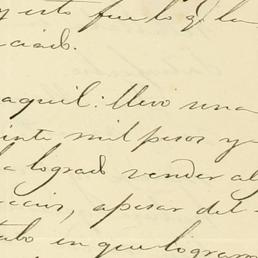 y esto fue lo q. la
ciado.
aquil: llevo una
inte mil pesos y
a logrado vender al
ccion, apesar del
tado en que logram